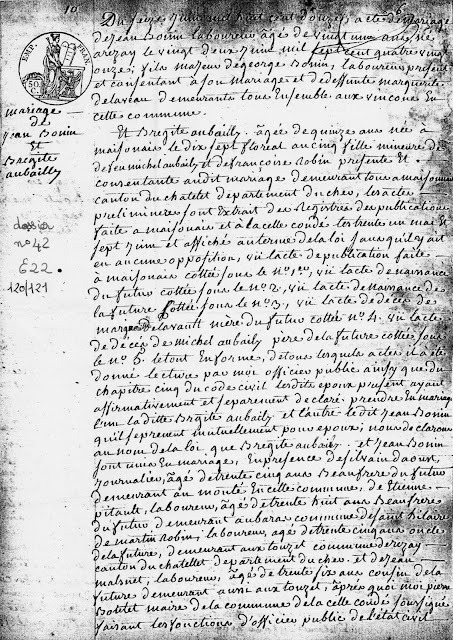 10
Du seize Juin mil huit cent douze, acte de mariage
de jean Bonin laboureur, âgé de vingt un ans, né
arezay le vingt deux juin, mil sept cent quatre vingt
onze; fils majeur de george Bonin, laboureur, present
et consentant à son mariage et de deffunte marguerite
delavau demeurants tous Ensemble aux vincons En
celle commune.
Et Brégite aubailly. âgée de quinze ans née à
maisonais le dix sept floreal au cinq fille mineure de
defeu michel aubailly et de francoise robin presente Et
consentante audit mariage demeurant tous a maisonnais
canton du chatelet departement du cher, les actes
preliminere sont Extrait des Registres des publications
faite a maisonais et à la celle condé les trente un mai Et
sept juin et affiché au terme de la loi sans quil y ait
eu aucune opposition, vu lacte de publication faite
à maisonais cottée sous le n° 1er, vu lacte de naissance
du futur cottée sous le n° 2, vu lacte de naissance de
la future cottée sous le n° 3, vu lacte de décès de
marguerite delavault mère du futur cottée n° 4. vu lacte
de décès de michel aubailly père de la future cottée sous
le n° 5. le tout En forme, de tous lesquels actes il a été
donné lecture par moi officier public ainsy que du
chapitre cinq du code civil lesdits epoux present ayant
affirmativement et separement declaré prendre En mariage
l'un laditte Brégite aubailly et l'autre ledit jean Bonin
quil se prennent mutuellement pour epoux; nous declarons
au nom de la loi que Bregite aubailly. et jean Bonin
sont unis En mariage, En presence de silvain daoust
journalier, âgé de trente cinq ans Beaufrere du futur
demeurant au monté En celle commune, de Etienne
pitault, laboureur, âgé de trente huit ans Beaufrere
du futur, demeurant aubaras commune de saint hilaire
de martin robin, laboureur, âgé de trente cinq ans oncle
de la future, demeurant aux touzet commune derezay
canton du chatellet departement du cher. et de jean
malnet, laboureur, âgé de trente six ans cousin de la
future demeurant aussi aux touzet, âprès quoi moi pierre
Botitet maire de la commune de la celle condé soussigné
faisant les fonctions d'officier public de l'état civil
EMP. FRAN
50
mariage
de
jean Bonin
Et
Brégite
aubailly
dossier
n° 42
E22.
120/121